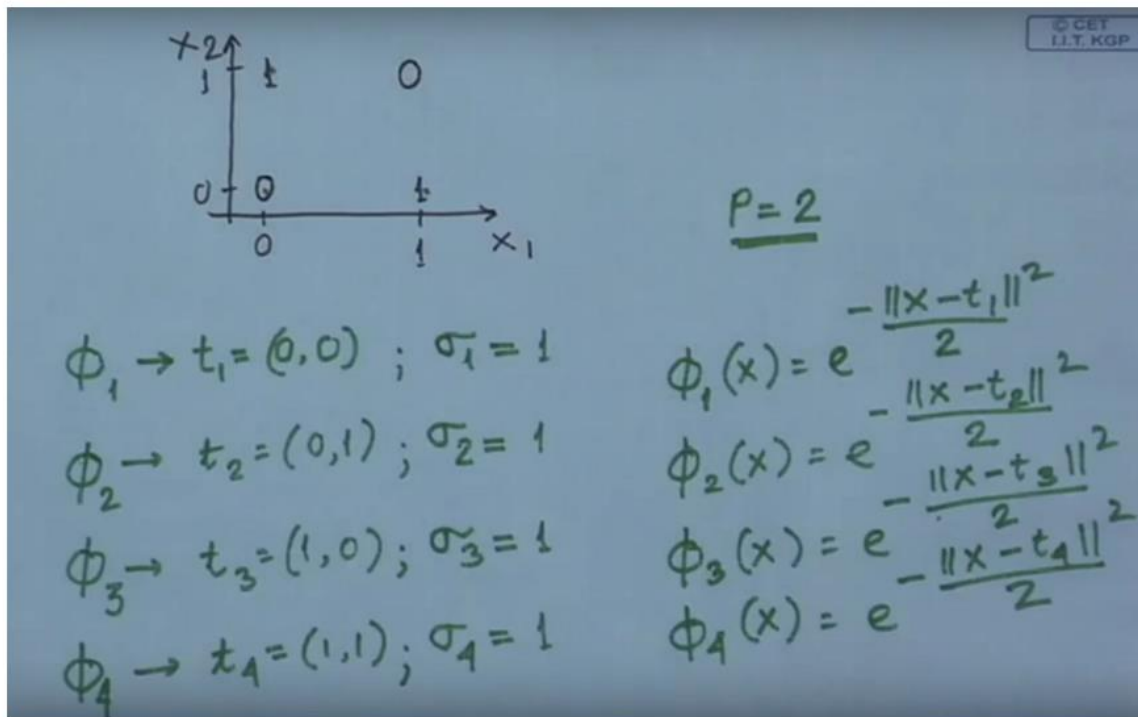 © CET
I.I.T. KGP
x2
1 1 0
0 0 1
0 1 x1
P=2
ϕ1 → t1=(0,0) ; σ1=1
ϕ2 → t2=(0,1) ; σ2=1
ϕ3 → t3=(1,0) ; σ3=1
ϕ4 → t4=(1,1) ; σ4=1
ϕ1(x) = e^-||x-t1||²/2
ϕ2(x) = e^-||x-t2||²/2
ϕ3(x) = e^-||x-t3||²/2
ϕ4(x) = e^-||x-t4||²/2